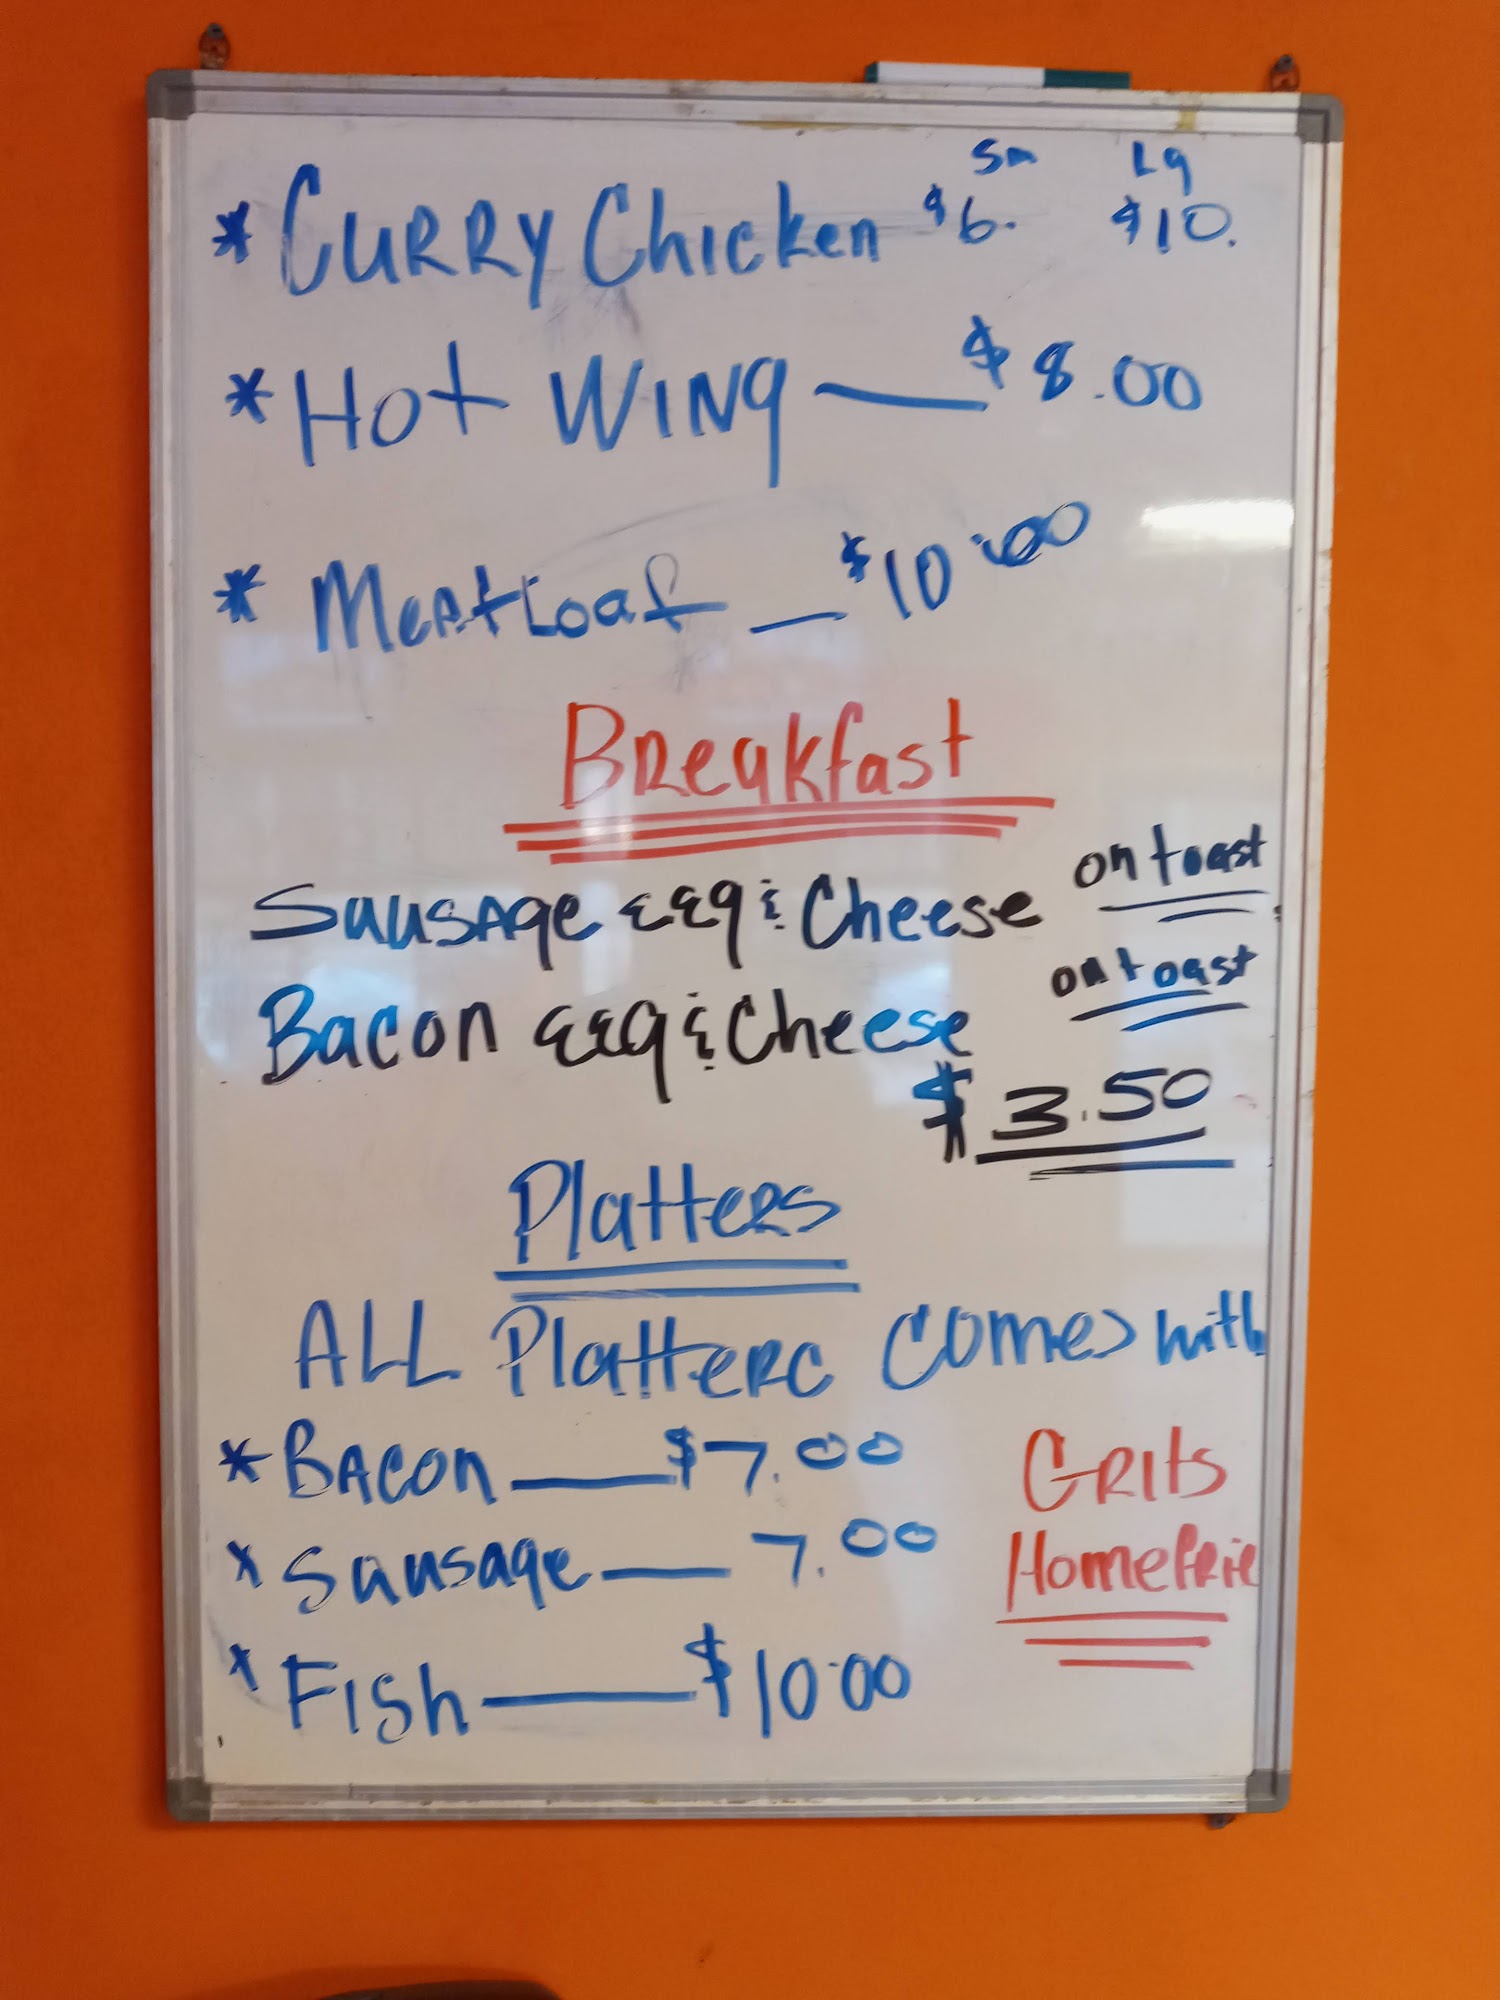 Sm Lg
* CURRY Chicken $6. $10.
* Hot WINg — $8.00
* MeatLoaf — $10.00
Breakfast
Sausage EEg & Cheese on toast
Bacon EEg & Cheese on toast
$3.50
Platters
ALL Platterc comes with
* BACON — $7.00
* Sausage — 7.00
* Fish — $10.00
GRits
Homefrie